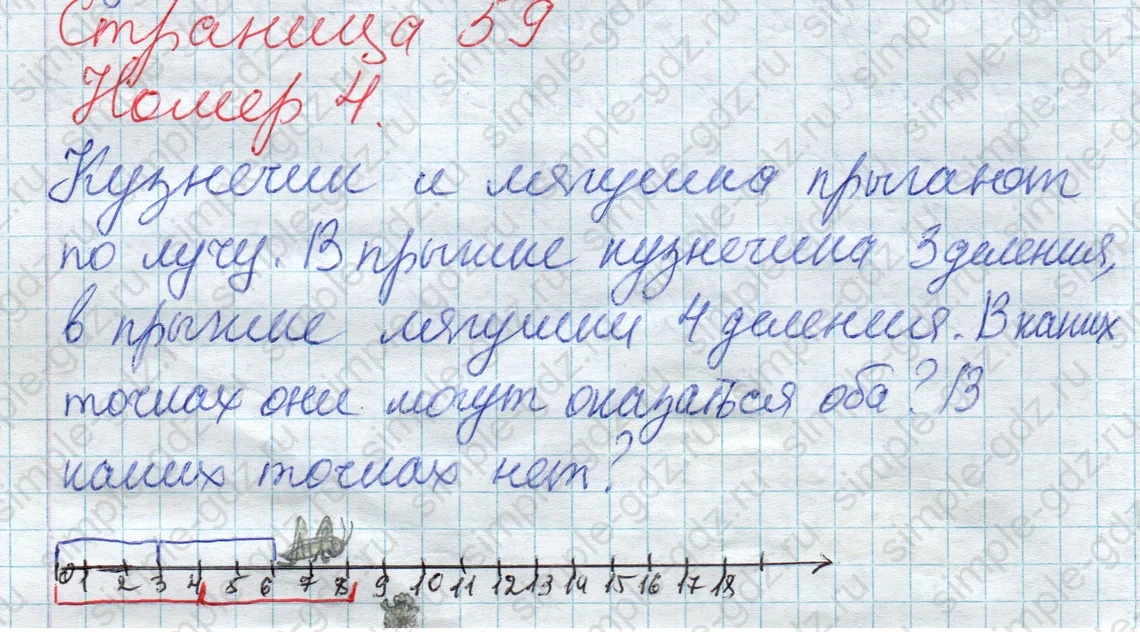 Страница 59
Номер 4.
Кузнечик и лягушка прыгают
по лучу. В прыжке кузнечика 3 деления,
в прыжке лягушки 4 деления. В каких
точках они могут оказаться оба? В
каких точках нет?
0 1 2 3 4 5 6 7 8 9 10 11 12 13 14 15 16 17 18
simple-gdz.ru